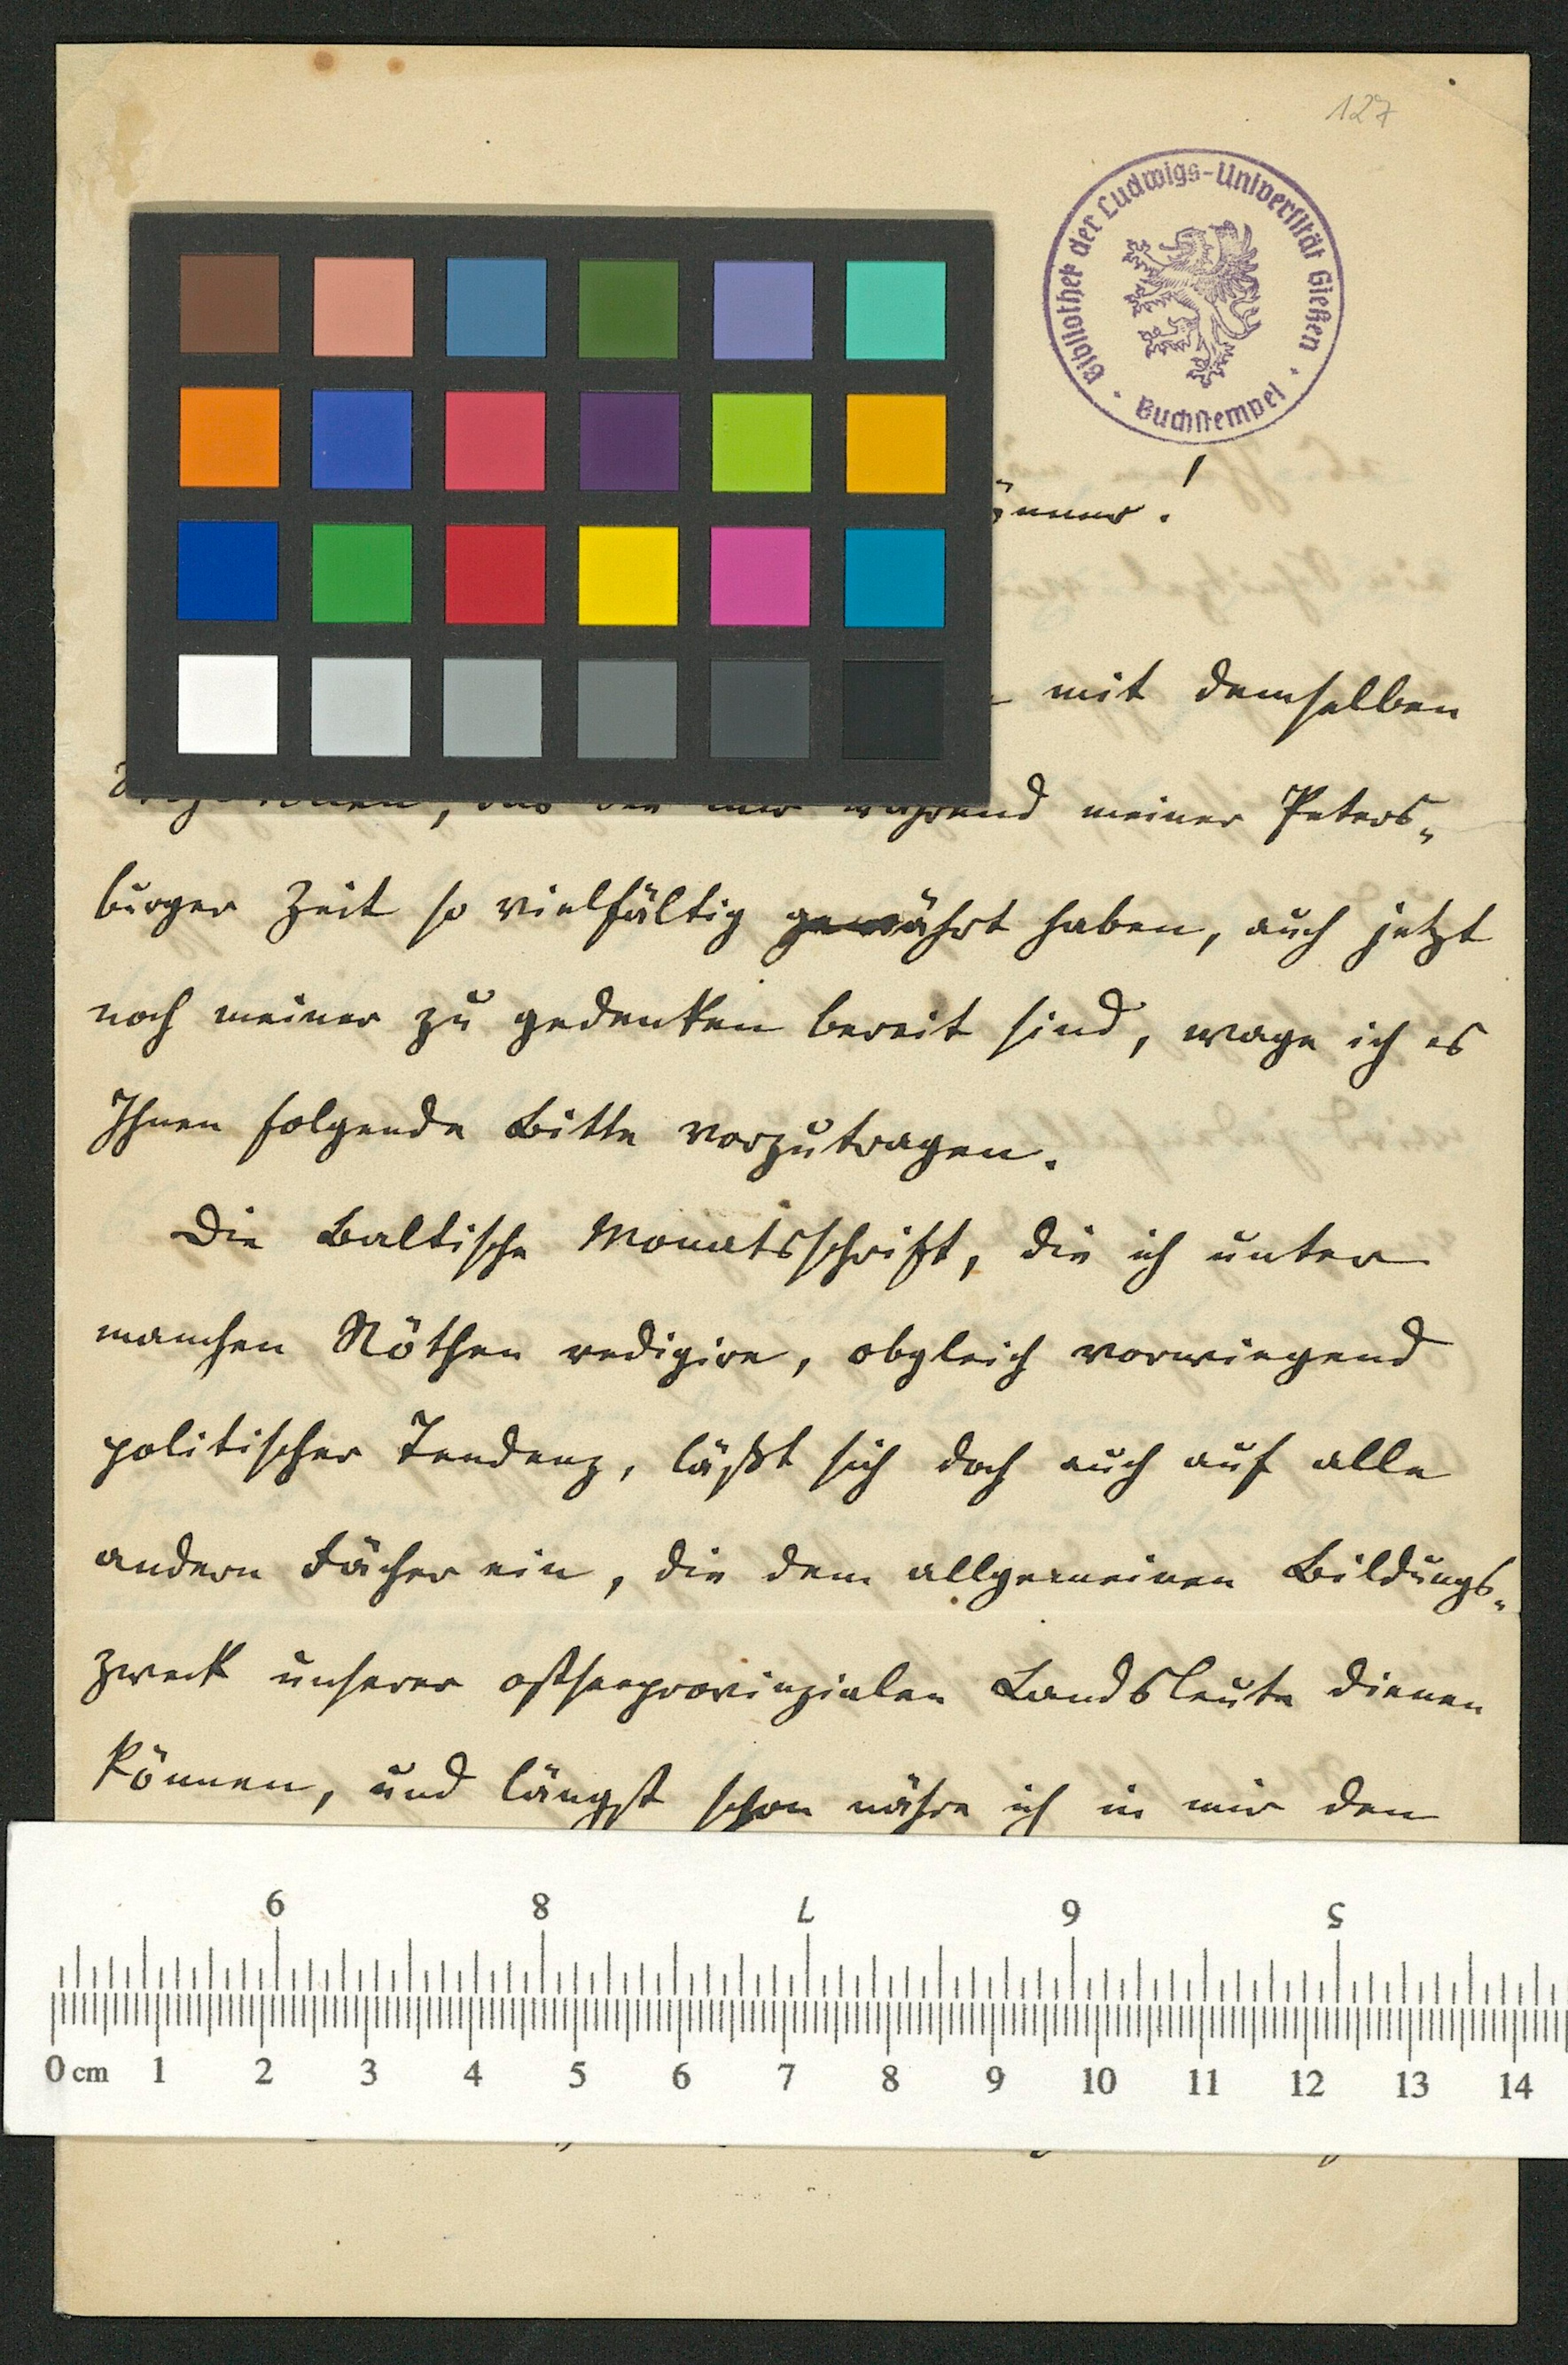 127
Bibliothek der Ludwigs-Universität Gießen
Buchstempel
mit demselben
während meiner Peters„
burger Zeit so vielfältig gewährt haben, auch jetzt
noch meiner zu gedenken bereit sind, wage ich es
Ihnen folgende Bitte vorzutragen.
Die Baltische Monatsschrift, die ich unter
manchen Nöthen redigire, obgleich vorwiegend
politischer Tendenz, läßt sich doch auch auf alle
andern Fächer ein, die dem allgemeinen Bildungs„
zweck unserer ostseeprovinzialen Landsleute dienen
können, und längst schon nähre ich in mir den
9 8 7 6 5
0 cm 1 2 3 4 5 6 7 8 9 10 11 12 13 14